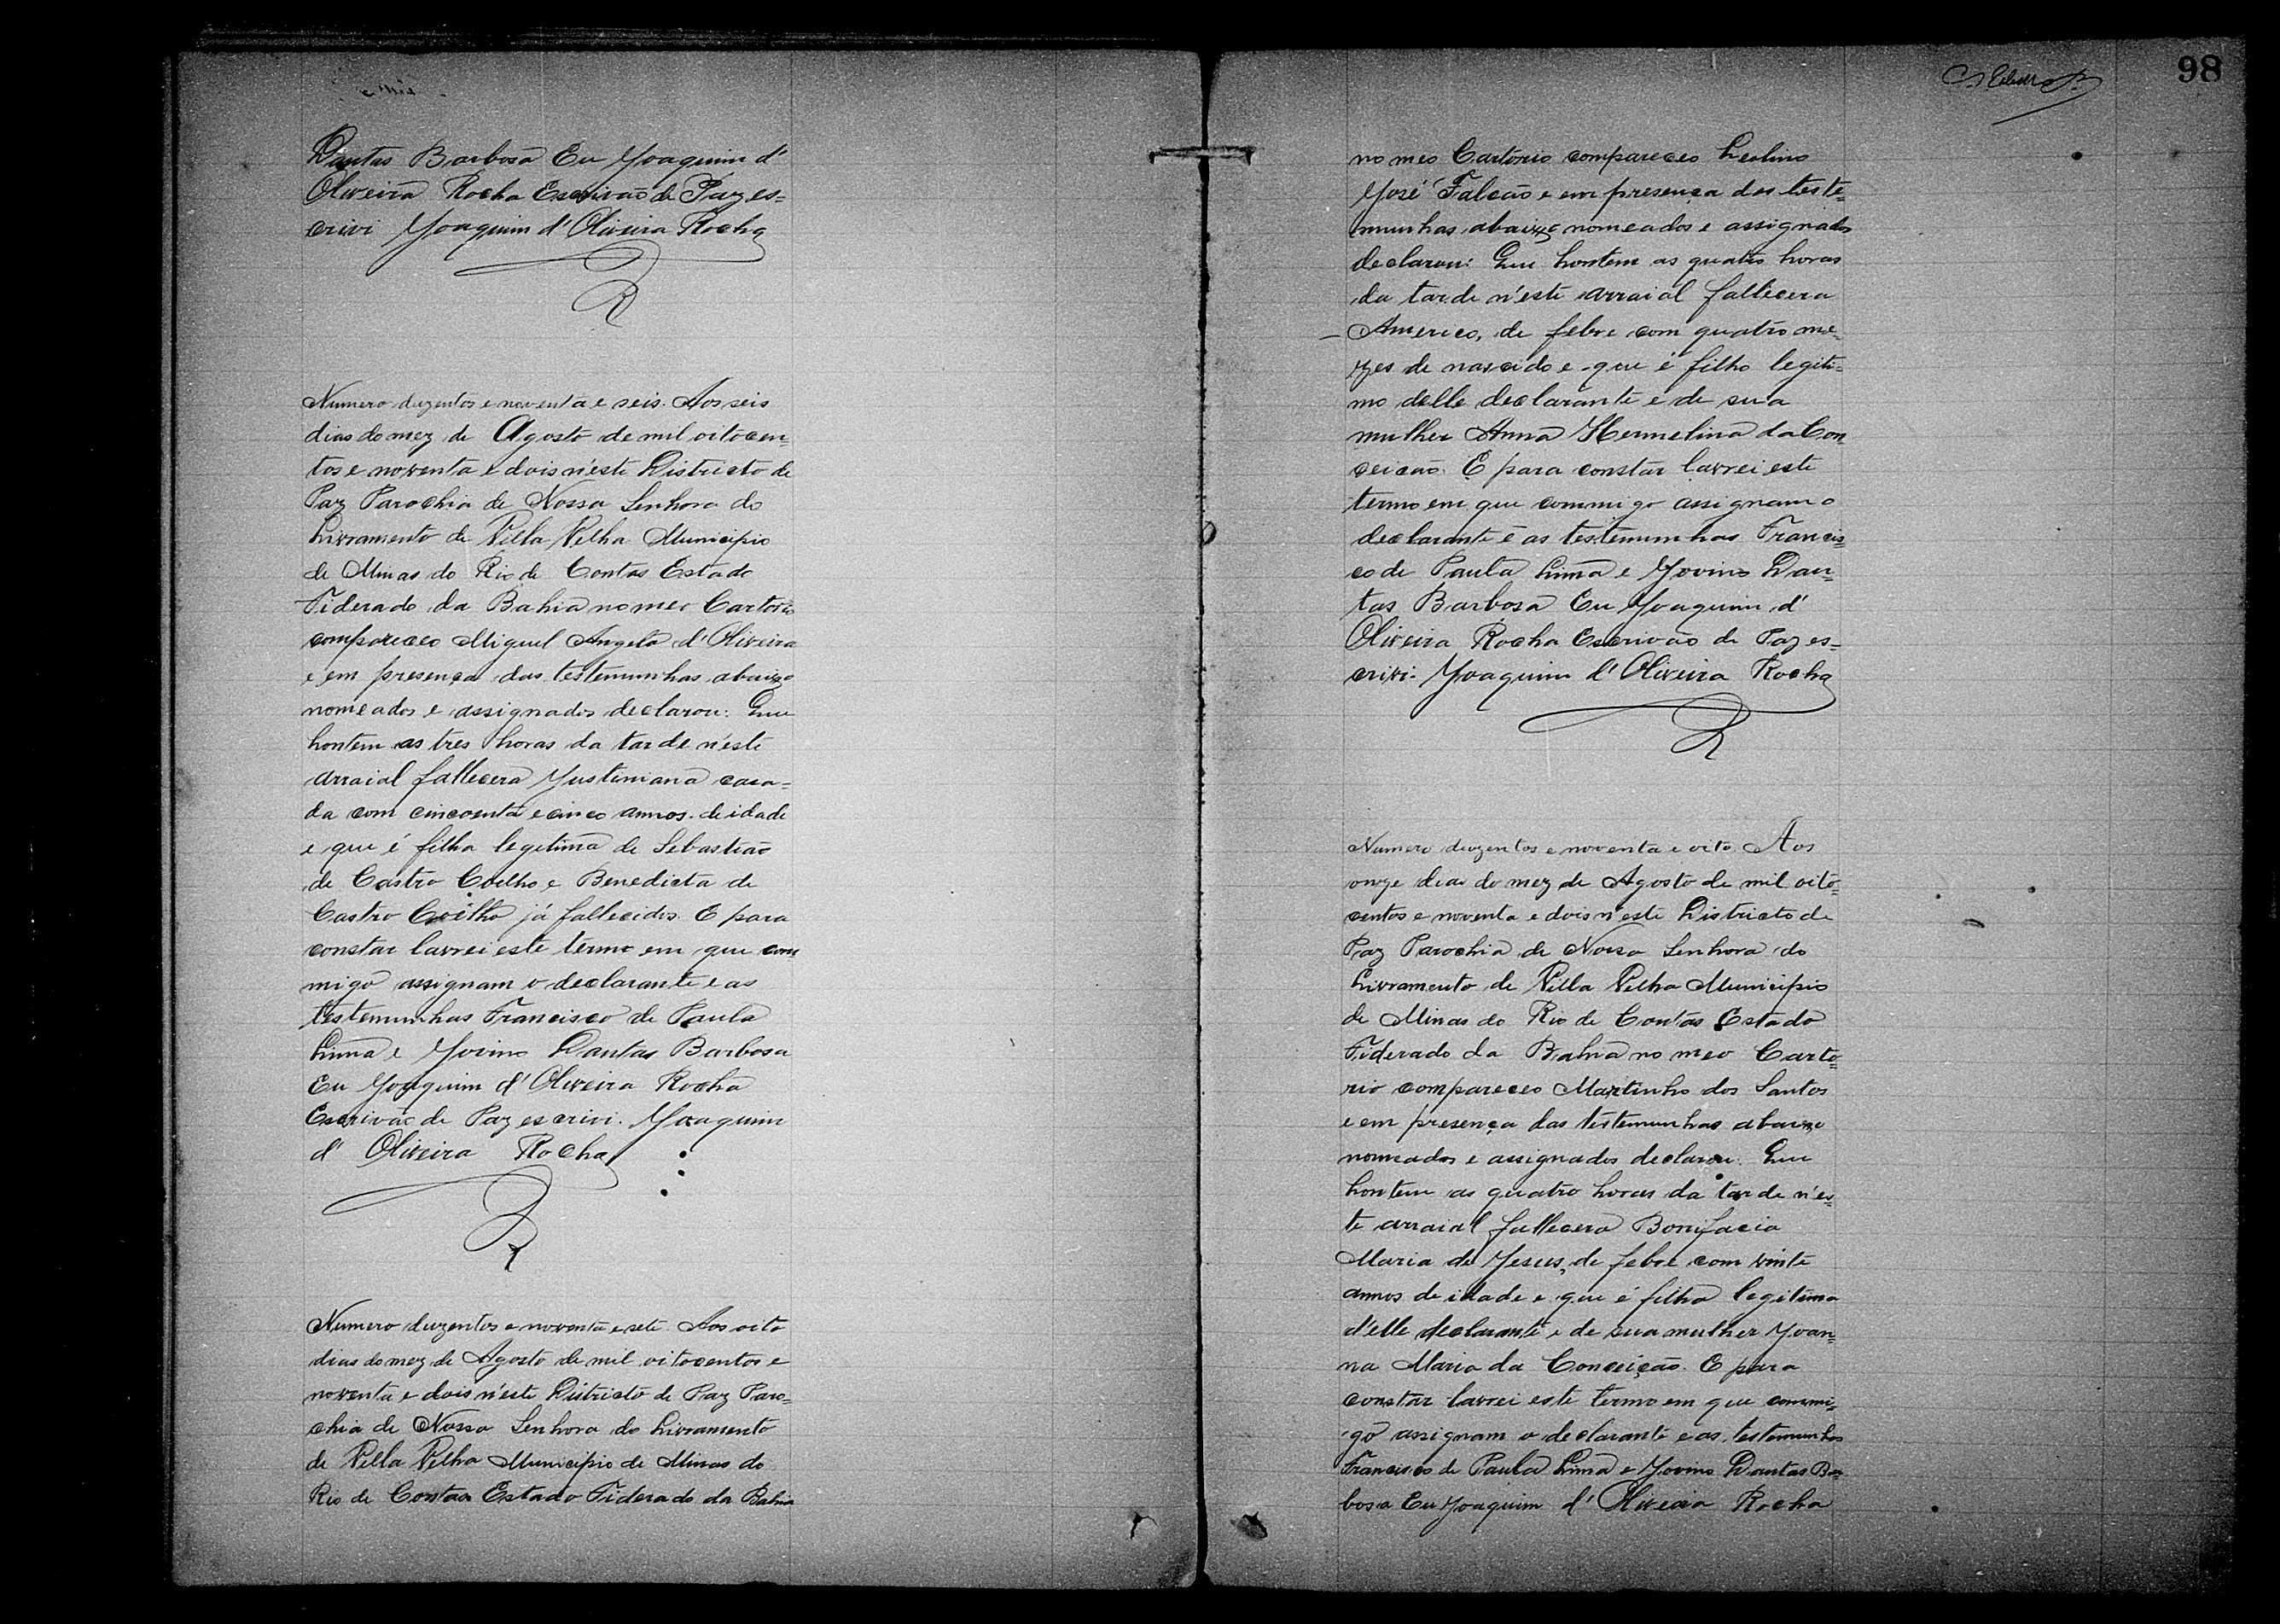 Dantas Barbosa Eu Joaquim d'
Oliveira Rocha Escrivão de Paz es=
crivi Joaquim d'Oliveira Rocha
Numero duzentos e noventa e seis. Aos seis
dias do mez de Agosto de mil oitocen=
tos e noventa e dois n'este Districto de
Paz Parochia de Nossa Senhora do
Livramento de Villa Velha Municipio
de Minas do Rio de Contas Estado
Fiderado da Bahia no meo Cartorio
compareceo Miguel Angelo d'Oliveira
e em presença das testemunhas abaixo
nomeados e assignados declarou: Que
hontem as tres horas da tarde n'este
arraial fallecera Justiniana casa=
da com cincoenta e cinco annos de idade
e que é filha legitima de Sebastião
de Castro Coelho e Benedicta de
Castro Coelho já fallecidos. E para
constar lavrei este termo em que com
migo assignam o declarante e as
testemunhas Francisco de Paula
Lima e Jovino Dantas Barbosa
Eu Joaquim d'Oliveira Rocha
Escrivão de Paz escrivi. Joaquim
d' Oliveira Rocha
Numero duzentos e noventa e sete. Aos oito
dias do mez de Agosto de mil oitocentos e
noventa e dois n'este Districto de Paz Paro=
chia de Nossa Senhora do Livramento
de Villa Velha Municipio de Minas do
Rio de Contas Estado Fiderado da Bahia
98
no meo Cartorio compareceo
José Falcão e em presença das teste=
munhas abaixo nomeados e assignados
declarou: Que hontem as quatro horas
da tarde n'este arraial fallecera
Americo, de febre com quatro me=
zes de nascido e que é filho legiti=
mo delle declarante e de sua
mulher Anna Hermelina da Con
ceicão. E para constar lavrei este
termo em que commigo assignam o
declarante e as testemunhas Francis=
co de Paula Lima e Jovino Dan=
tas Barbosa Eu Joaquim d'
Oliveira Rocha Escrivão de Paz es=
crivi. Joaquim d'Oliveira Rocha
Numero duzentos e noventa e oito. Aos
onze dias do mez de Agosto de mil oito=
centos e noventa e dois n'este Districto de
Paz Parochia de Nossa Senhora do
Livramento de Villa Velha Municipio
de Minas do Rio de Contas Estado
Fiderado da Bahia no meo Carto=
rio compareceo Martinho dos Santos
e em presença das testemunhas abaixo
nomeados e assignados declarou: Que
hontem as quatro horas da tarde n'es=
te arraial fallecera Bonifacia
Maria de Jesus, de febre com vinte
annos de idade e que é filha legitima
d'elle declarante e de sua mulher Joan=
na Maria da Conceição. E para
constar lavrei este termo em que commi=
go assignam o declarante e as testemunhas
Francisco de Paula Lima e Jovino Dantas Bar=
bosa Eu Joaquim d' Oliveira Rocha